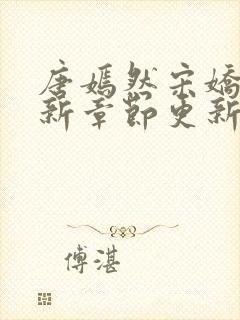 唐嫣然宋嬌
新章節更新
傅湛